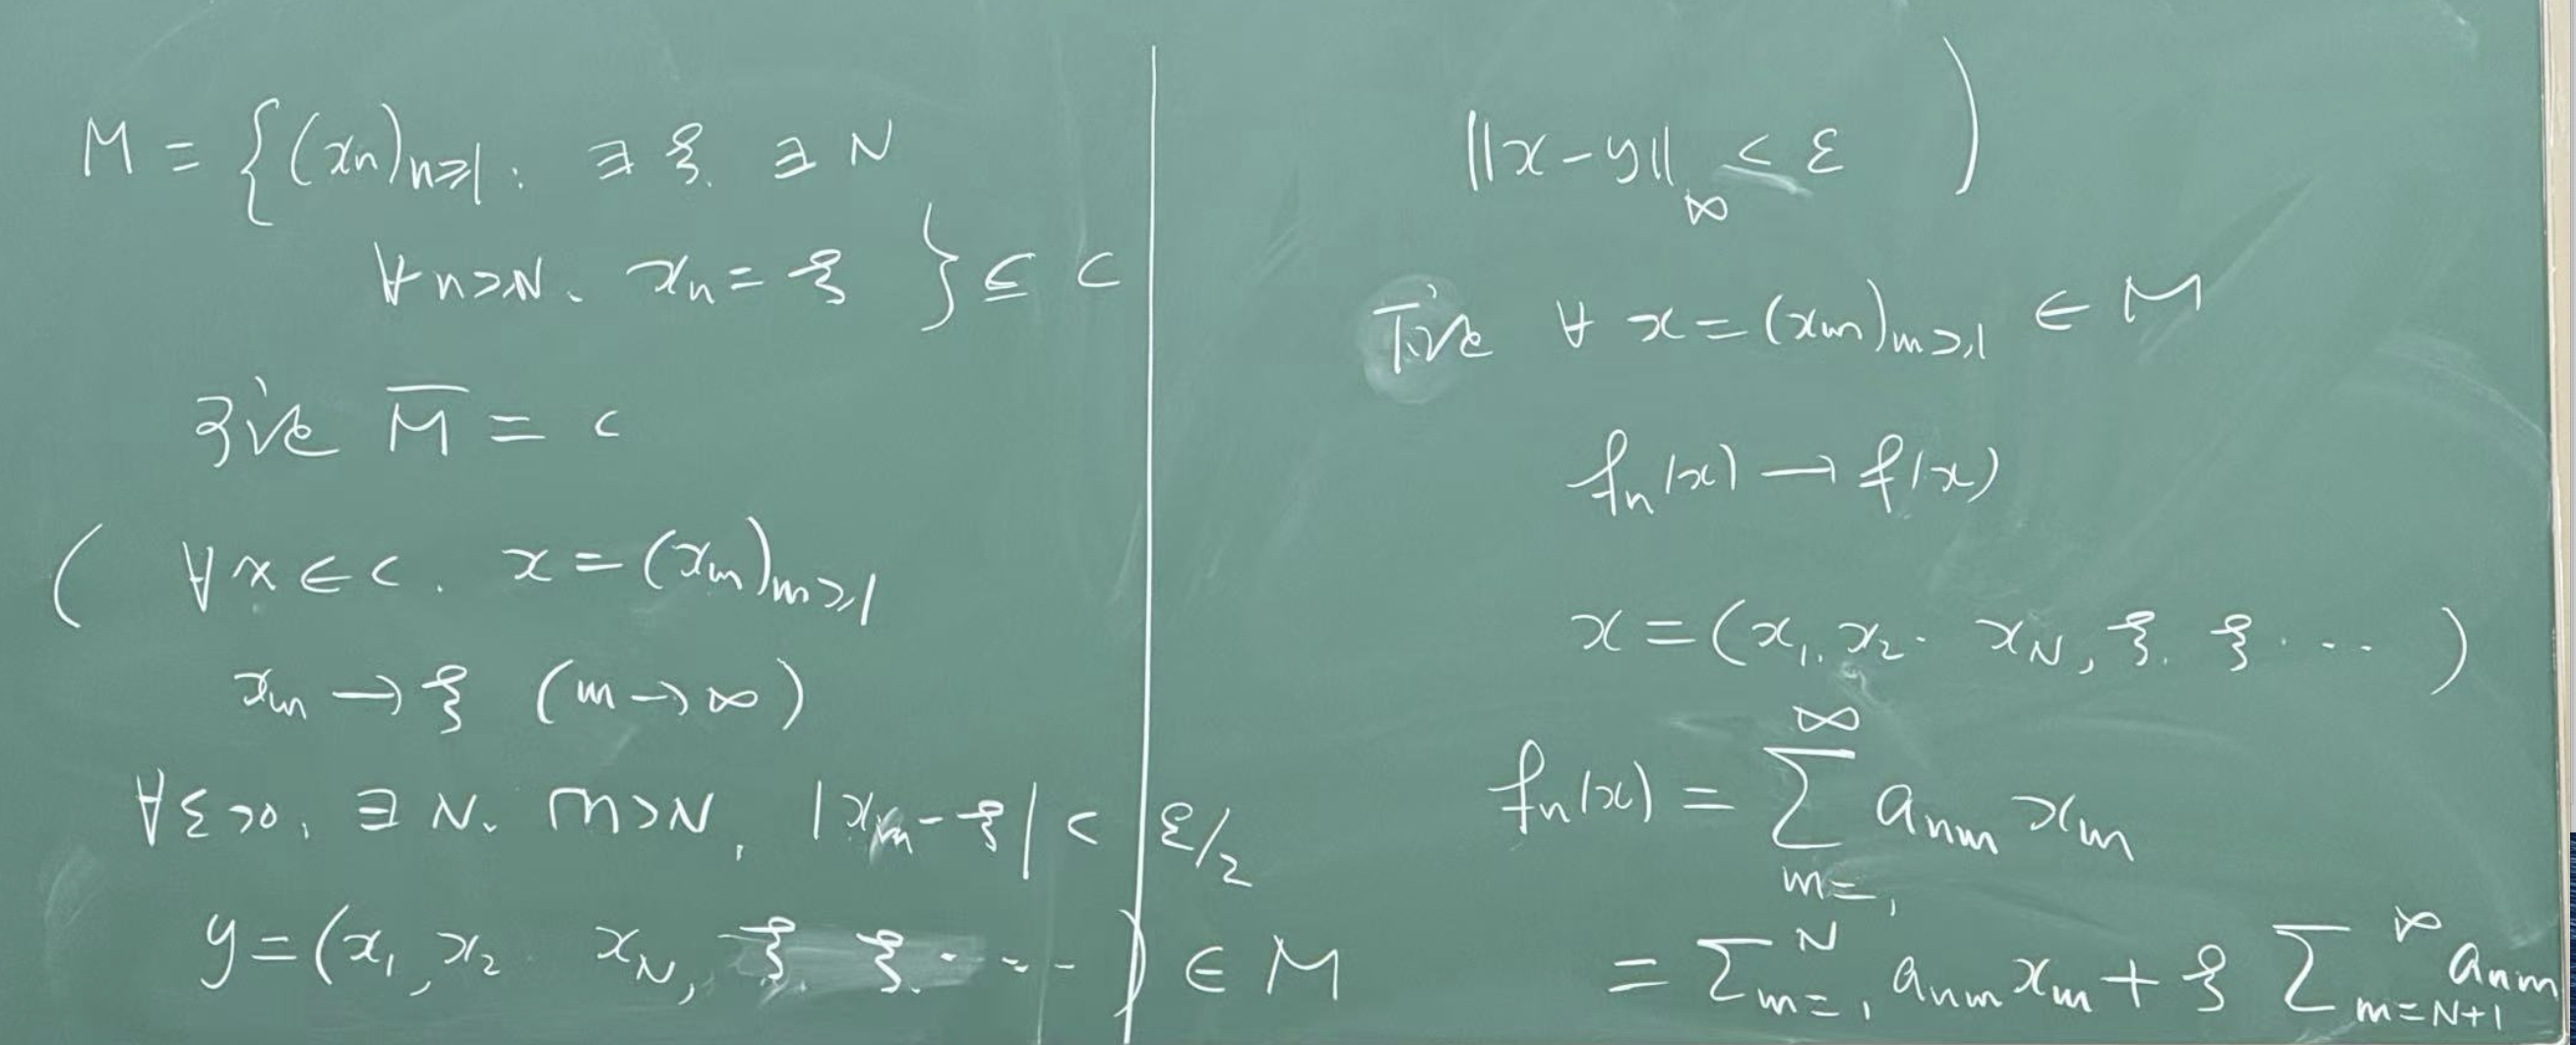 M = {(xₙ)ₙ≥₁ : ∃ ξ. ∃ N
∀ n>N. xₙ = ξ } ⊆ c
证 M̄ = c
( ∀ x ∈ c. x = (xₘ)ₘ≥₁
xₘ → ξ (m → ∞)
∀ε>0, ∃ N. m>N, |xₘ - ξ| < ε/2
y = (x₁, x₂ xN, ξ. ξ. ...) ∈ M
‖x - y‖_∞ ≤ ε )
下证 ∀ x = (xₘ)ₘ≥₁ ∈ M
fₙ(x) → f(x)
x = (x₁, x₂. xN, ξ. ξ. ...)
fₙ(x) = ∑_{m=1}^{∞} aₙₘ xₘ
= ∑_{m=1}^{N} aₙₘ xₘ + ξ ∑_{m=N+1}^{∞} aₙₘ